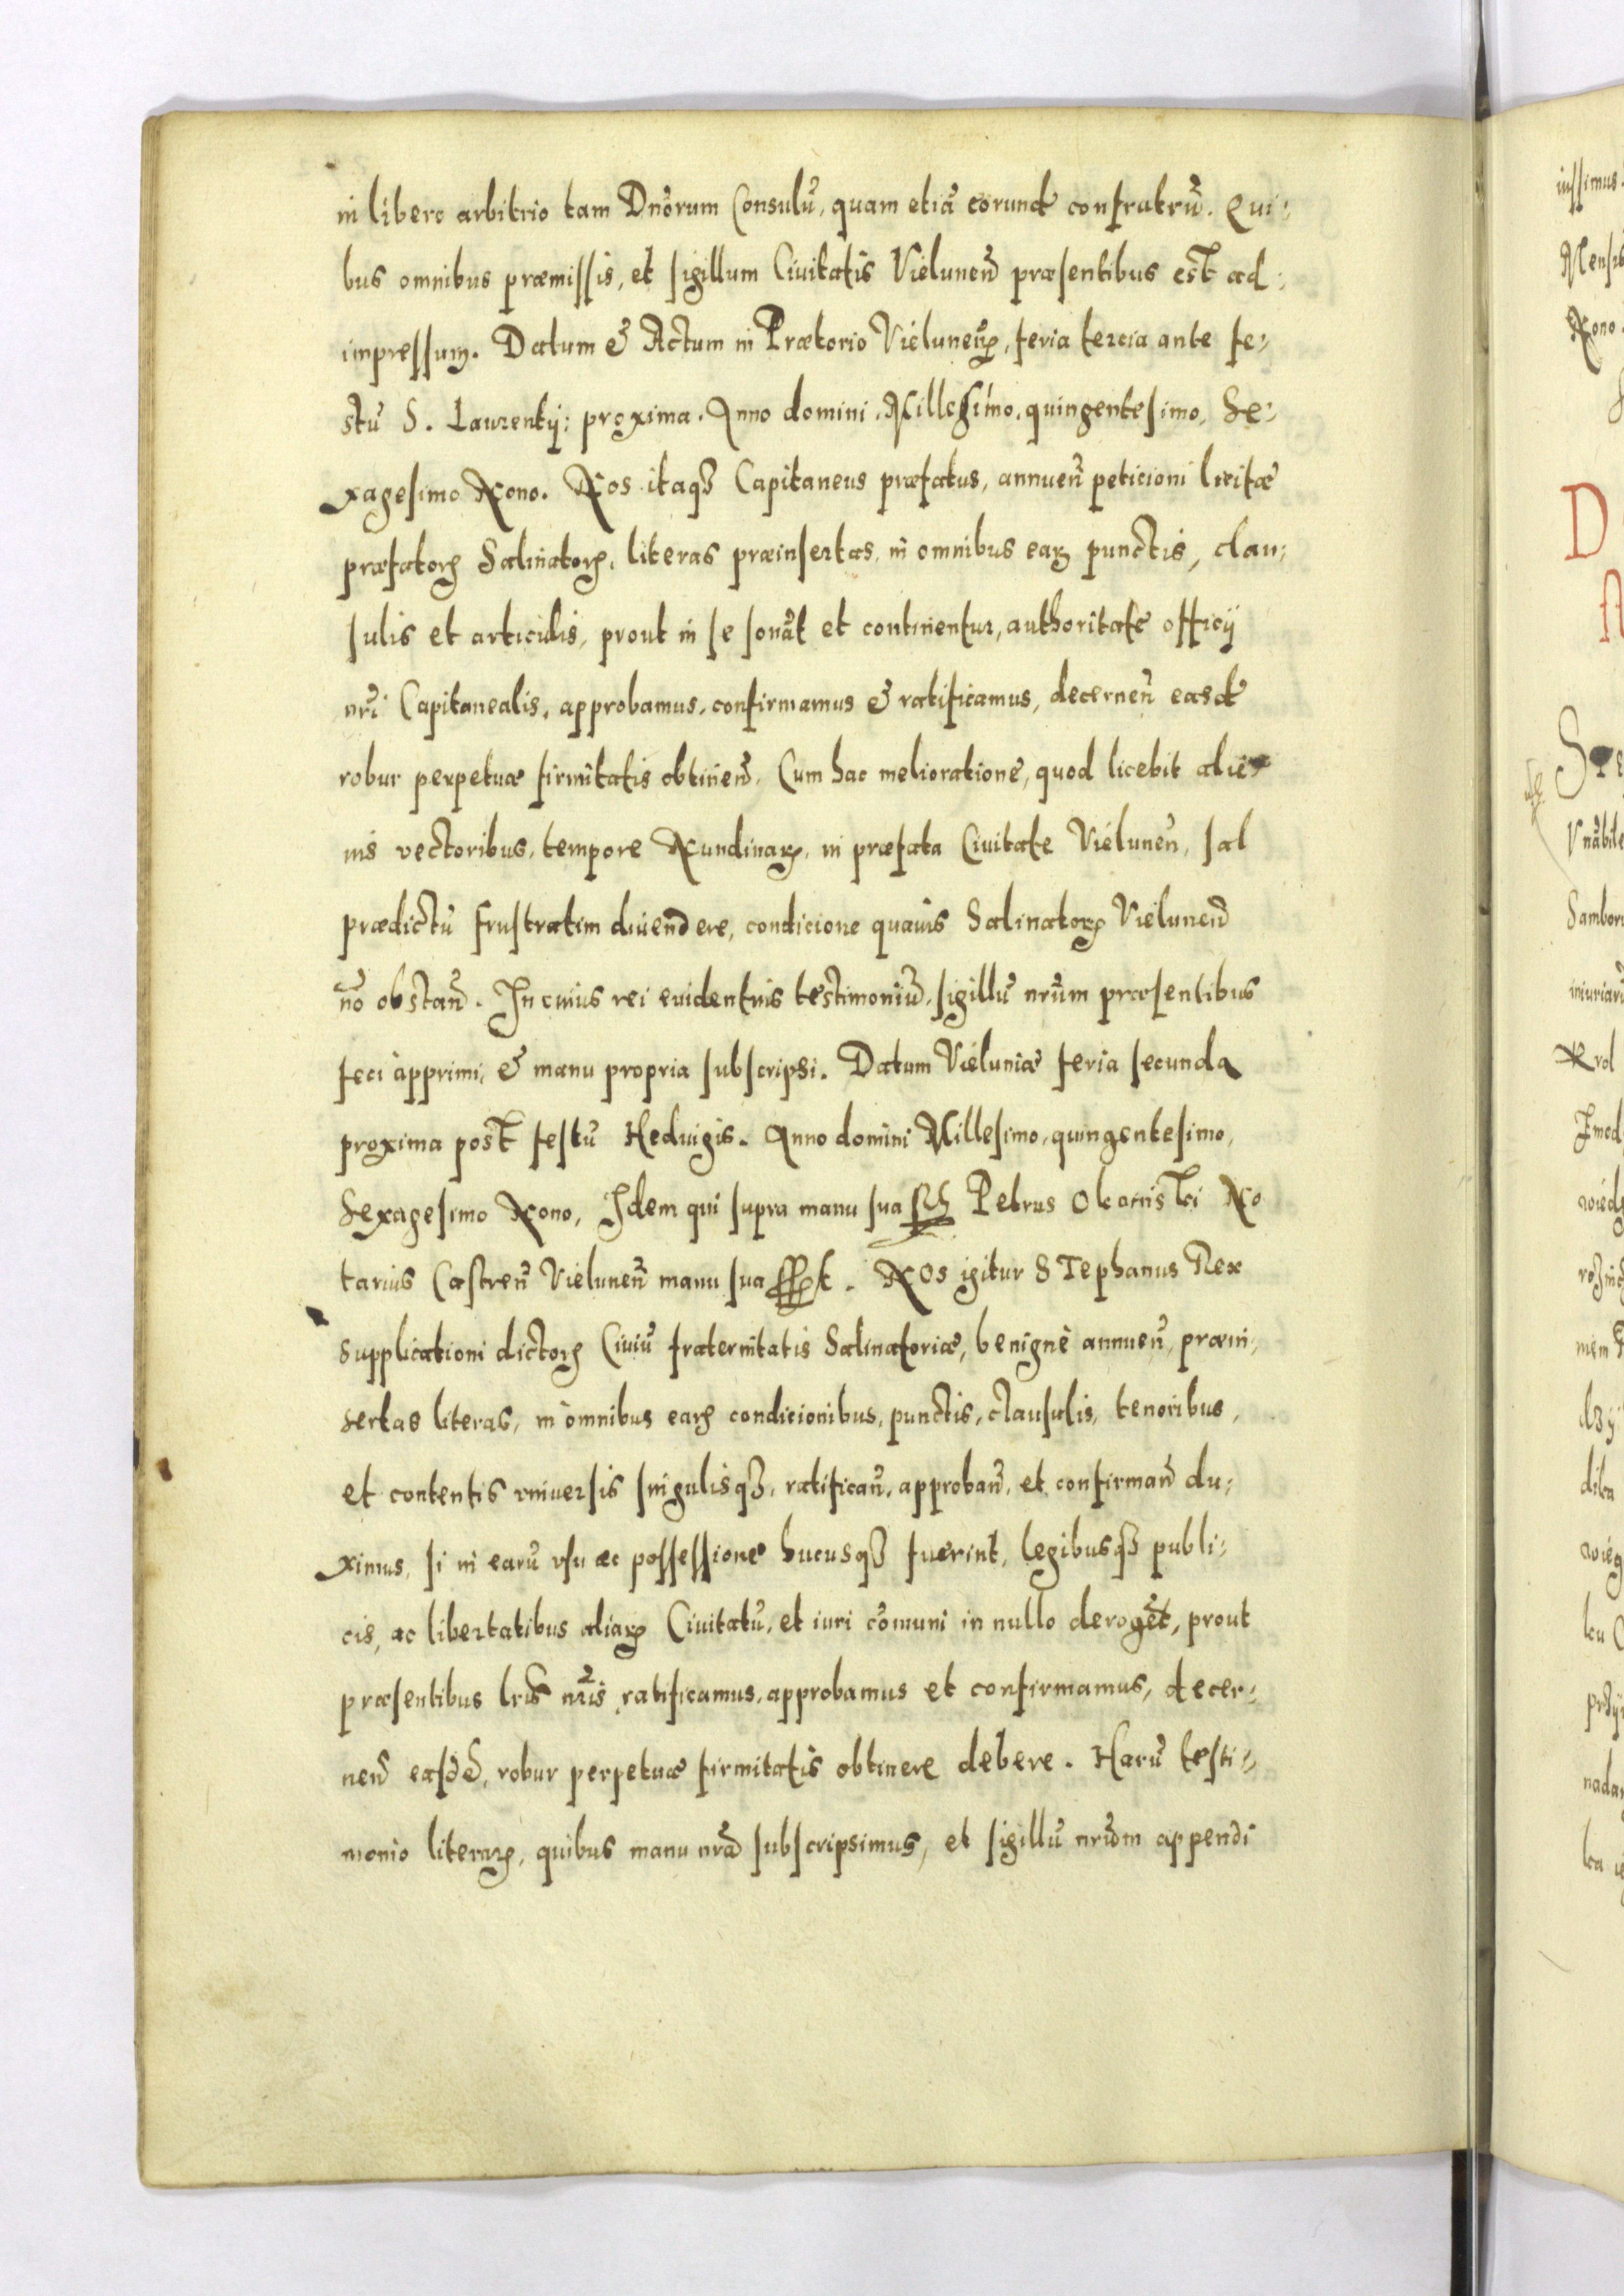 in libero arbitrio tam Dnorum Consulũ, quam etiã eorund confratrũ. Qui:
bus omnibus præmissis, et sigillum Ciuitatis Vielunen præsentibus est ad:
impressum. Datum & Actum in Prætorio Vielunen, feria tercia ante fe:
stũ S. Laurentij: proxima. Anno domini Millesimo, quingentesimo, Se:
xagesimo Nono. Nos itaqꝫ Capitaneus præfatus, annuen peticioni licitæ
præfatoꝝ Salinatoꝝ, literas præinsertas, in omnibus eaꝝ punctis, clau:
sulis et articulis, prout in se sonãt et continentur, authoritate officij
nrĩ Capitanealis, approbamus, confirmamus & ratificamus, decernen easd
robur perpetuæ firmitatis obtinen. Cum hac melioratione, quod licebit alie
nis vectoribus, tempore Nundinaꝝ, in præfata Ciuitate Vielunen, sal
prædictũ frustratim diuendere, condicione quauis Salinatoꝝ Vielunen
nõ obstan. In cuius rei euidentius testimoniũ, sigillũ nrũm præsentibus
feci apprimi, & manu propria subscripsi. Datum Vieluniæ feria secunda
proxima post festũ Heduigis. Anno domini Millesimo, quingentesimo,
Sexagesimo Nono, Idem qui supra manu sua Petrus Okonski No
tarius Castren Vielunen manu sua. Nos igitur STephanus Rex
supplicationi dictoꝝ Ciuiũ fraternitatis Salinatoriæ, benignè annuen, præin:
sertas literas, in omnibus eaꝝ condicionibus, punctis, clausulis, tenoribus,
et contentis vniuersis singulisqꝫ, ratifican, approban, et confirman du:
ximus, si in earũ vsu ac possessione hucusqꝫ fuerint, legibusqꝫ publi:
cis, ac libertatibus aliaꝝ Ciuitatũ, et iuri cõmuni in nullo derogẽt, prout
præsentibus lrĩs nrĩs ratificamus, approbamus et confirmamus, decer:
nen easd, robur perpetuæ firmitatis obtinere debere. Harũ testi:
monio literaꝝ, quibus manu nrã subscripsimus, et sigillũ nrũm appendi